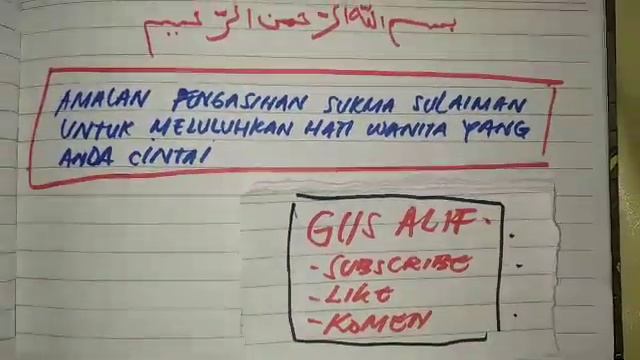 بسم الله الرحمن الرحيم
AMALAN PENGASIHAN SUKMA SULAIMAN
UNTUK MELULUHKAN HATI WANITA YANG
ANDA CINTAI
GUS ALIF.
- SUBSCRIBE
- LIKE
- KOMEN